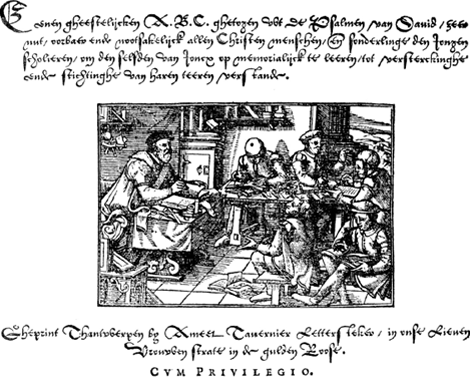 Eenen gheestelijcken A.B.C. ghetogen wt de Psalmen van David, seer
nut, oorbaer ende nootsakelijck allen Christen menschen, en sonderlinge den Jongen
scholieren, om den selfden van Joncx op memorialijck te leeren, tot versterckinghe
ende stichtinghe van haren teeren verstande.
Gheprint Thantwerpen by Ameet Tavernier Lettersteker, in onse Lieven
Vrouwen strate in de gulden Roose.
CVM PRIVILEGIO.